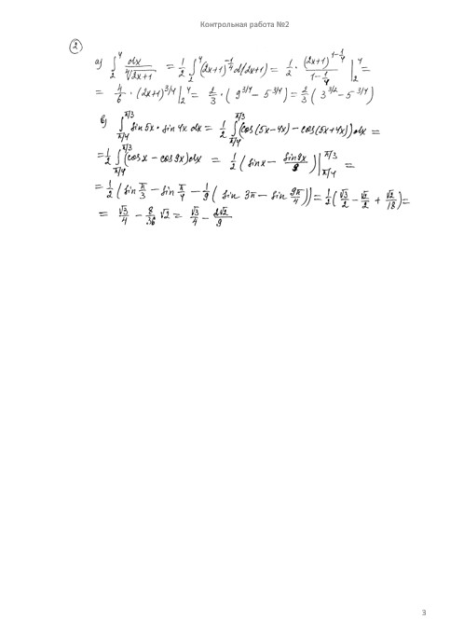 Контрольная работа №2
②
а) ∫₂⁴ dx/⁴√(2x+1) = 1/2 ∫₂⁴ (2x+1)^(-1/4) d(2x+1) = 1/2 · (2x+1)^(1-1/4)/(1-1/4) |₂⁴ =
= 4/6 · (2x+1)^(3/4) |₂⁴ = 2/3 · (9^(3/4) - 5^(3/4)) = 2/3 (3^(3/2) - 5^(3/4))
в) ∫_(π/4)^(π/3) sin5x · sin 4x dx = 1/2 ∫_(π/4)^(π/3) (cos(5x-4x) - cos(5x+4x)) dx =
= 1/2 ∫_(π/4)^(π/3) (cosx - cos9x) dx = 1/2 (sinx - sin9x/9) |_(π/4)^(π/3) =
= 1/2 (sin π/3 - sin π/4 - 1/9 (sin 3π - sin 9π/4)) = 1/2 (√3/2 - √2/2 + √2/18) =
= √3/4 - 8/36 √2 = √3/4 - 2√2/9
3